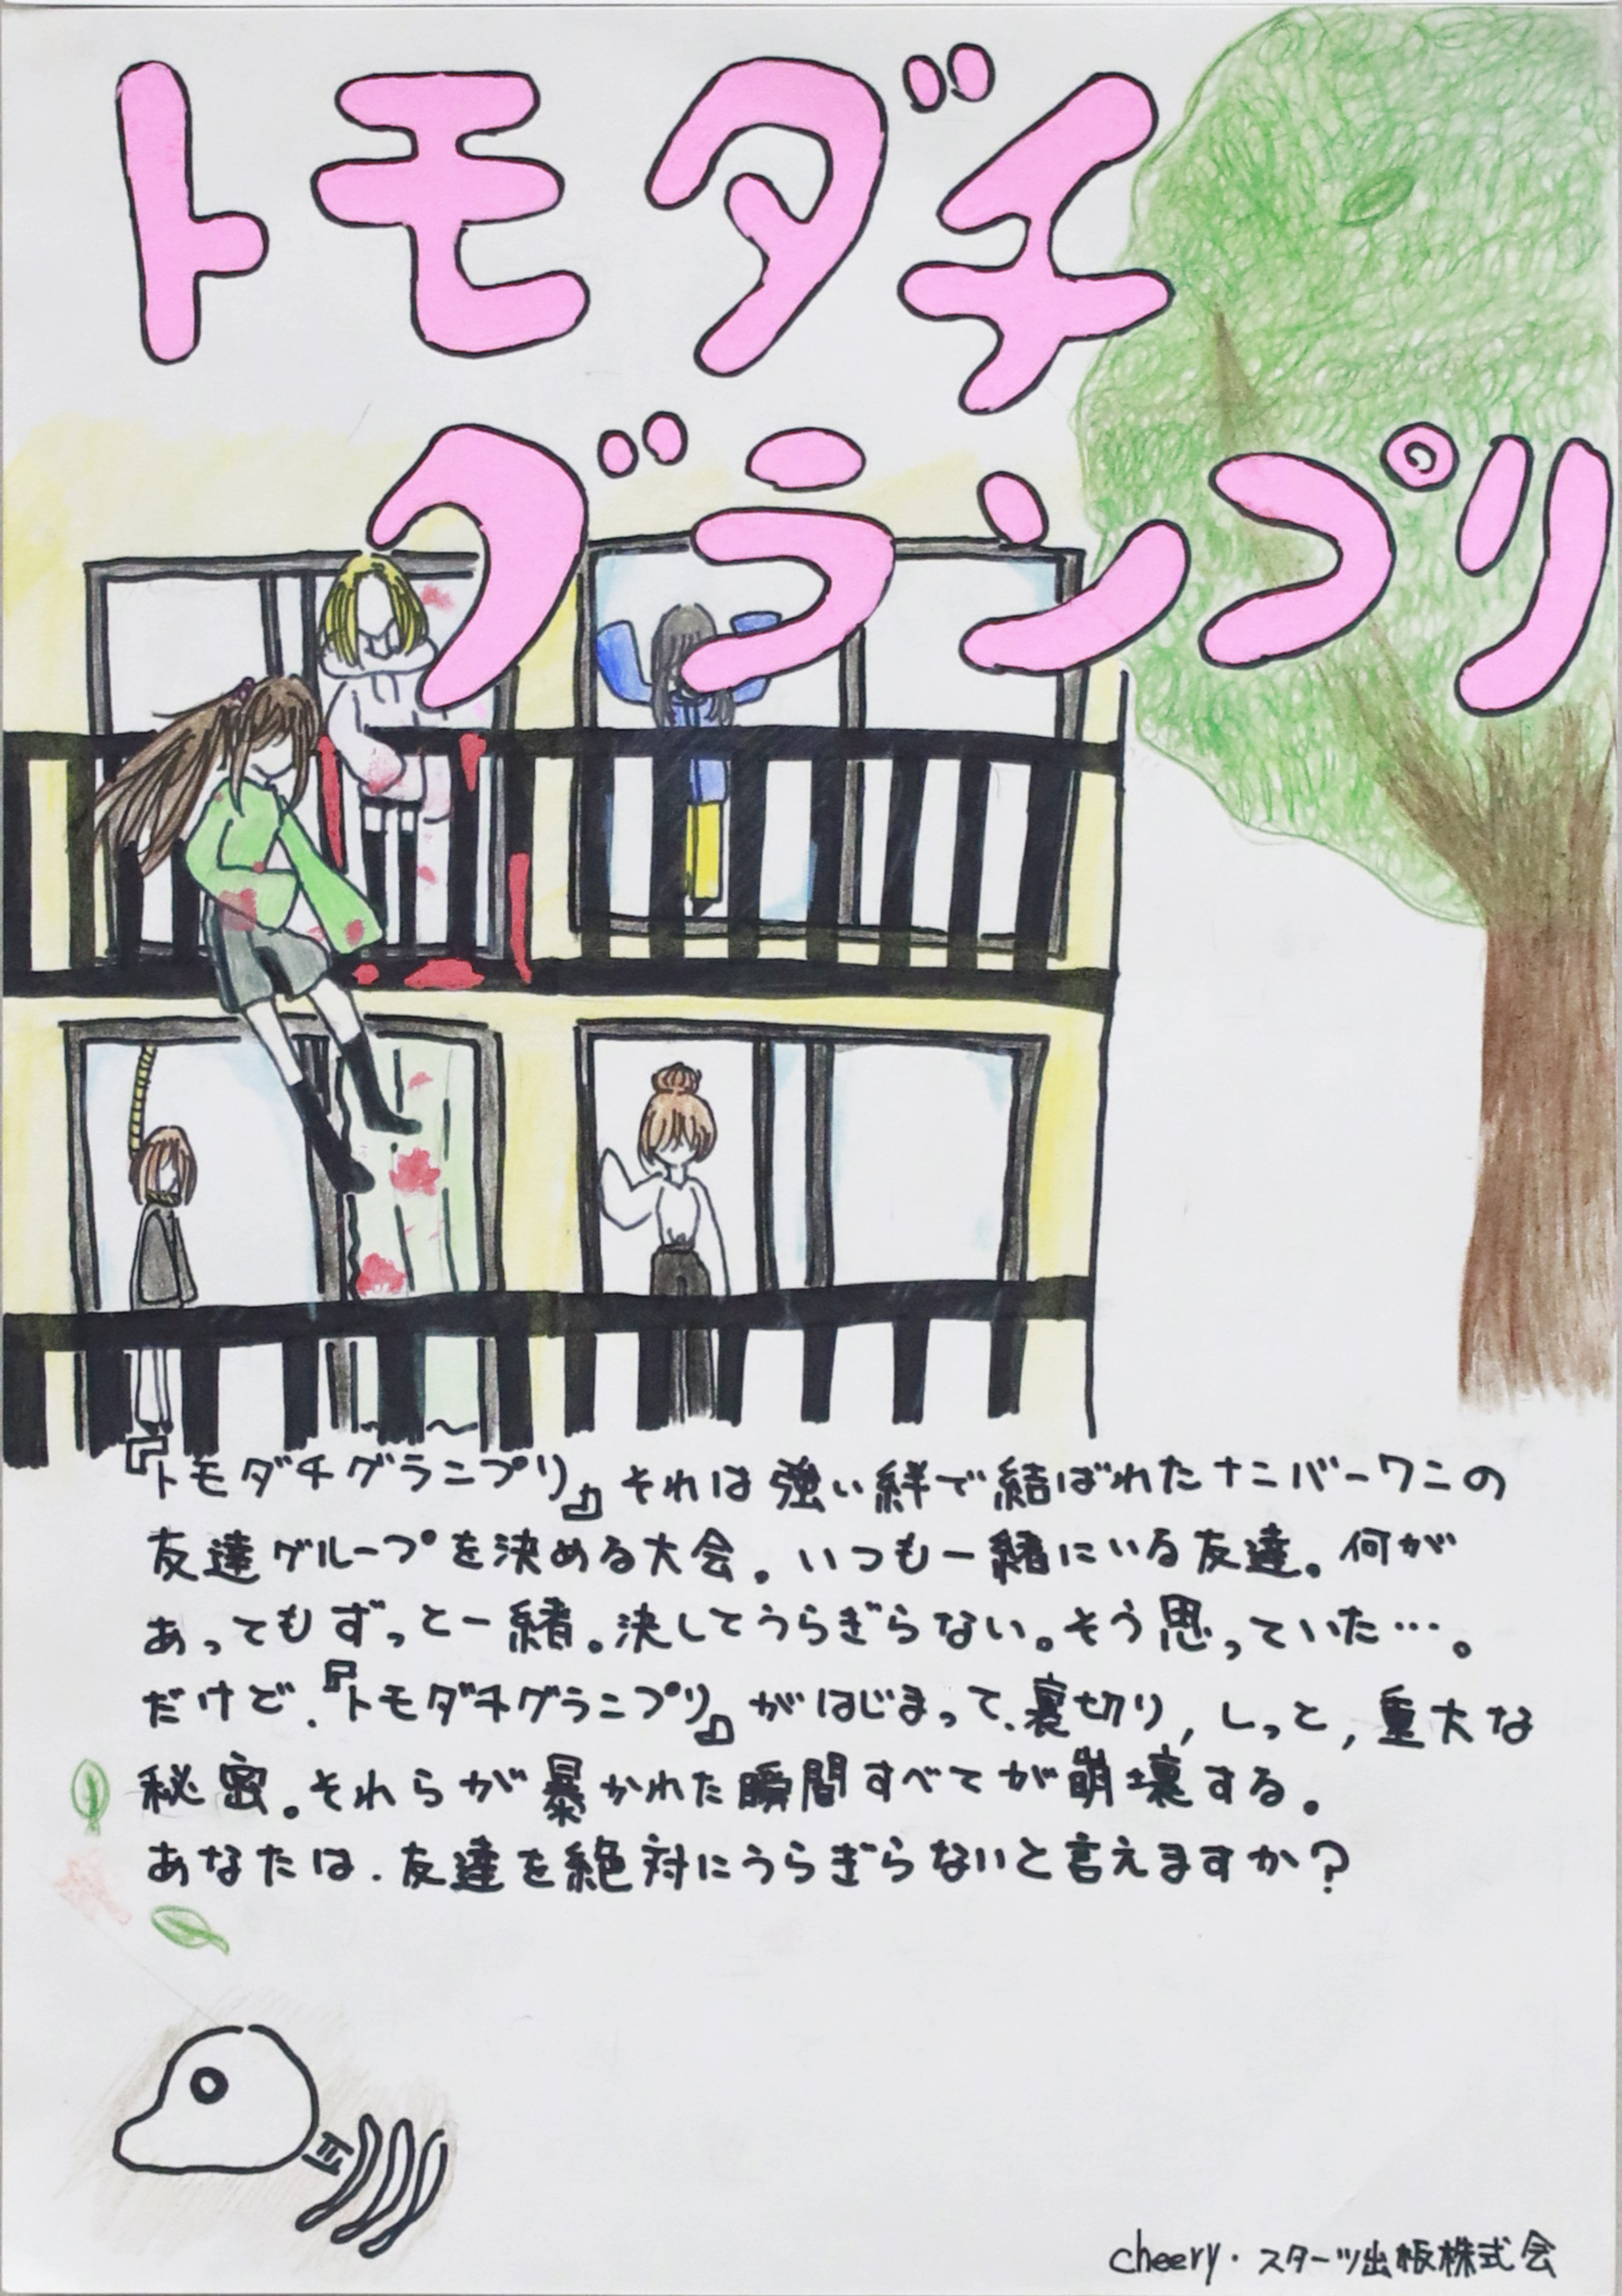 トモダチ
グランプリ
『トモダチグランプリ』それは強い絆で結ばれたナンバーワンの
友達グループを決める大会。いつも一緒にいる友達。何が
あってもずっと一緒。決してうらぎらない。そう思っていた…。
だけど、『トモダチグランプリ』がはじまって、裏切り,しっと,重大な
秘密。それらが暴かれた瞬間すべてが崩壊する。
あなたは、友達を絶対にうらぎらないと言えますか?
cheery・スターツ出版株式会